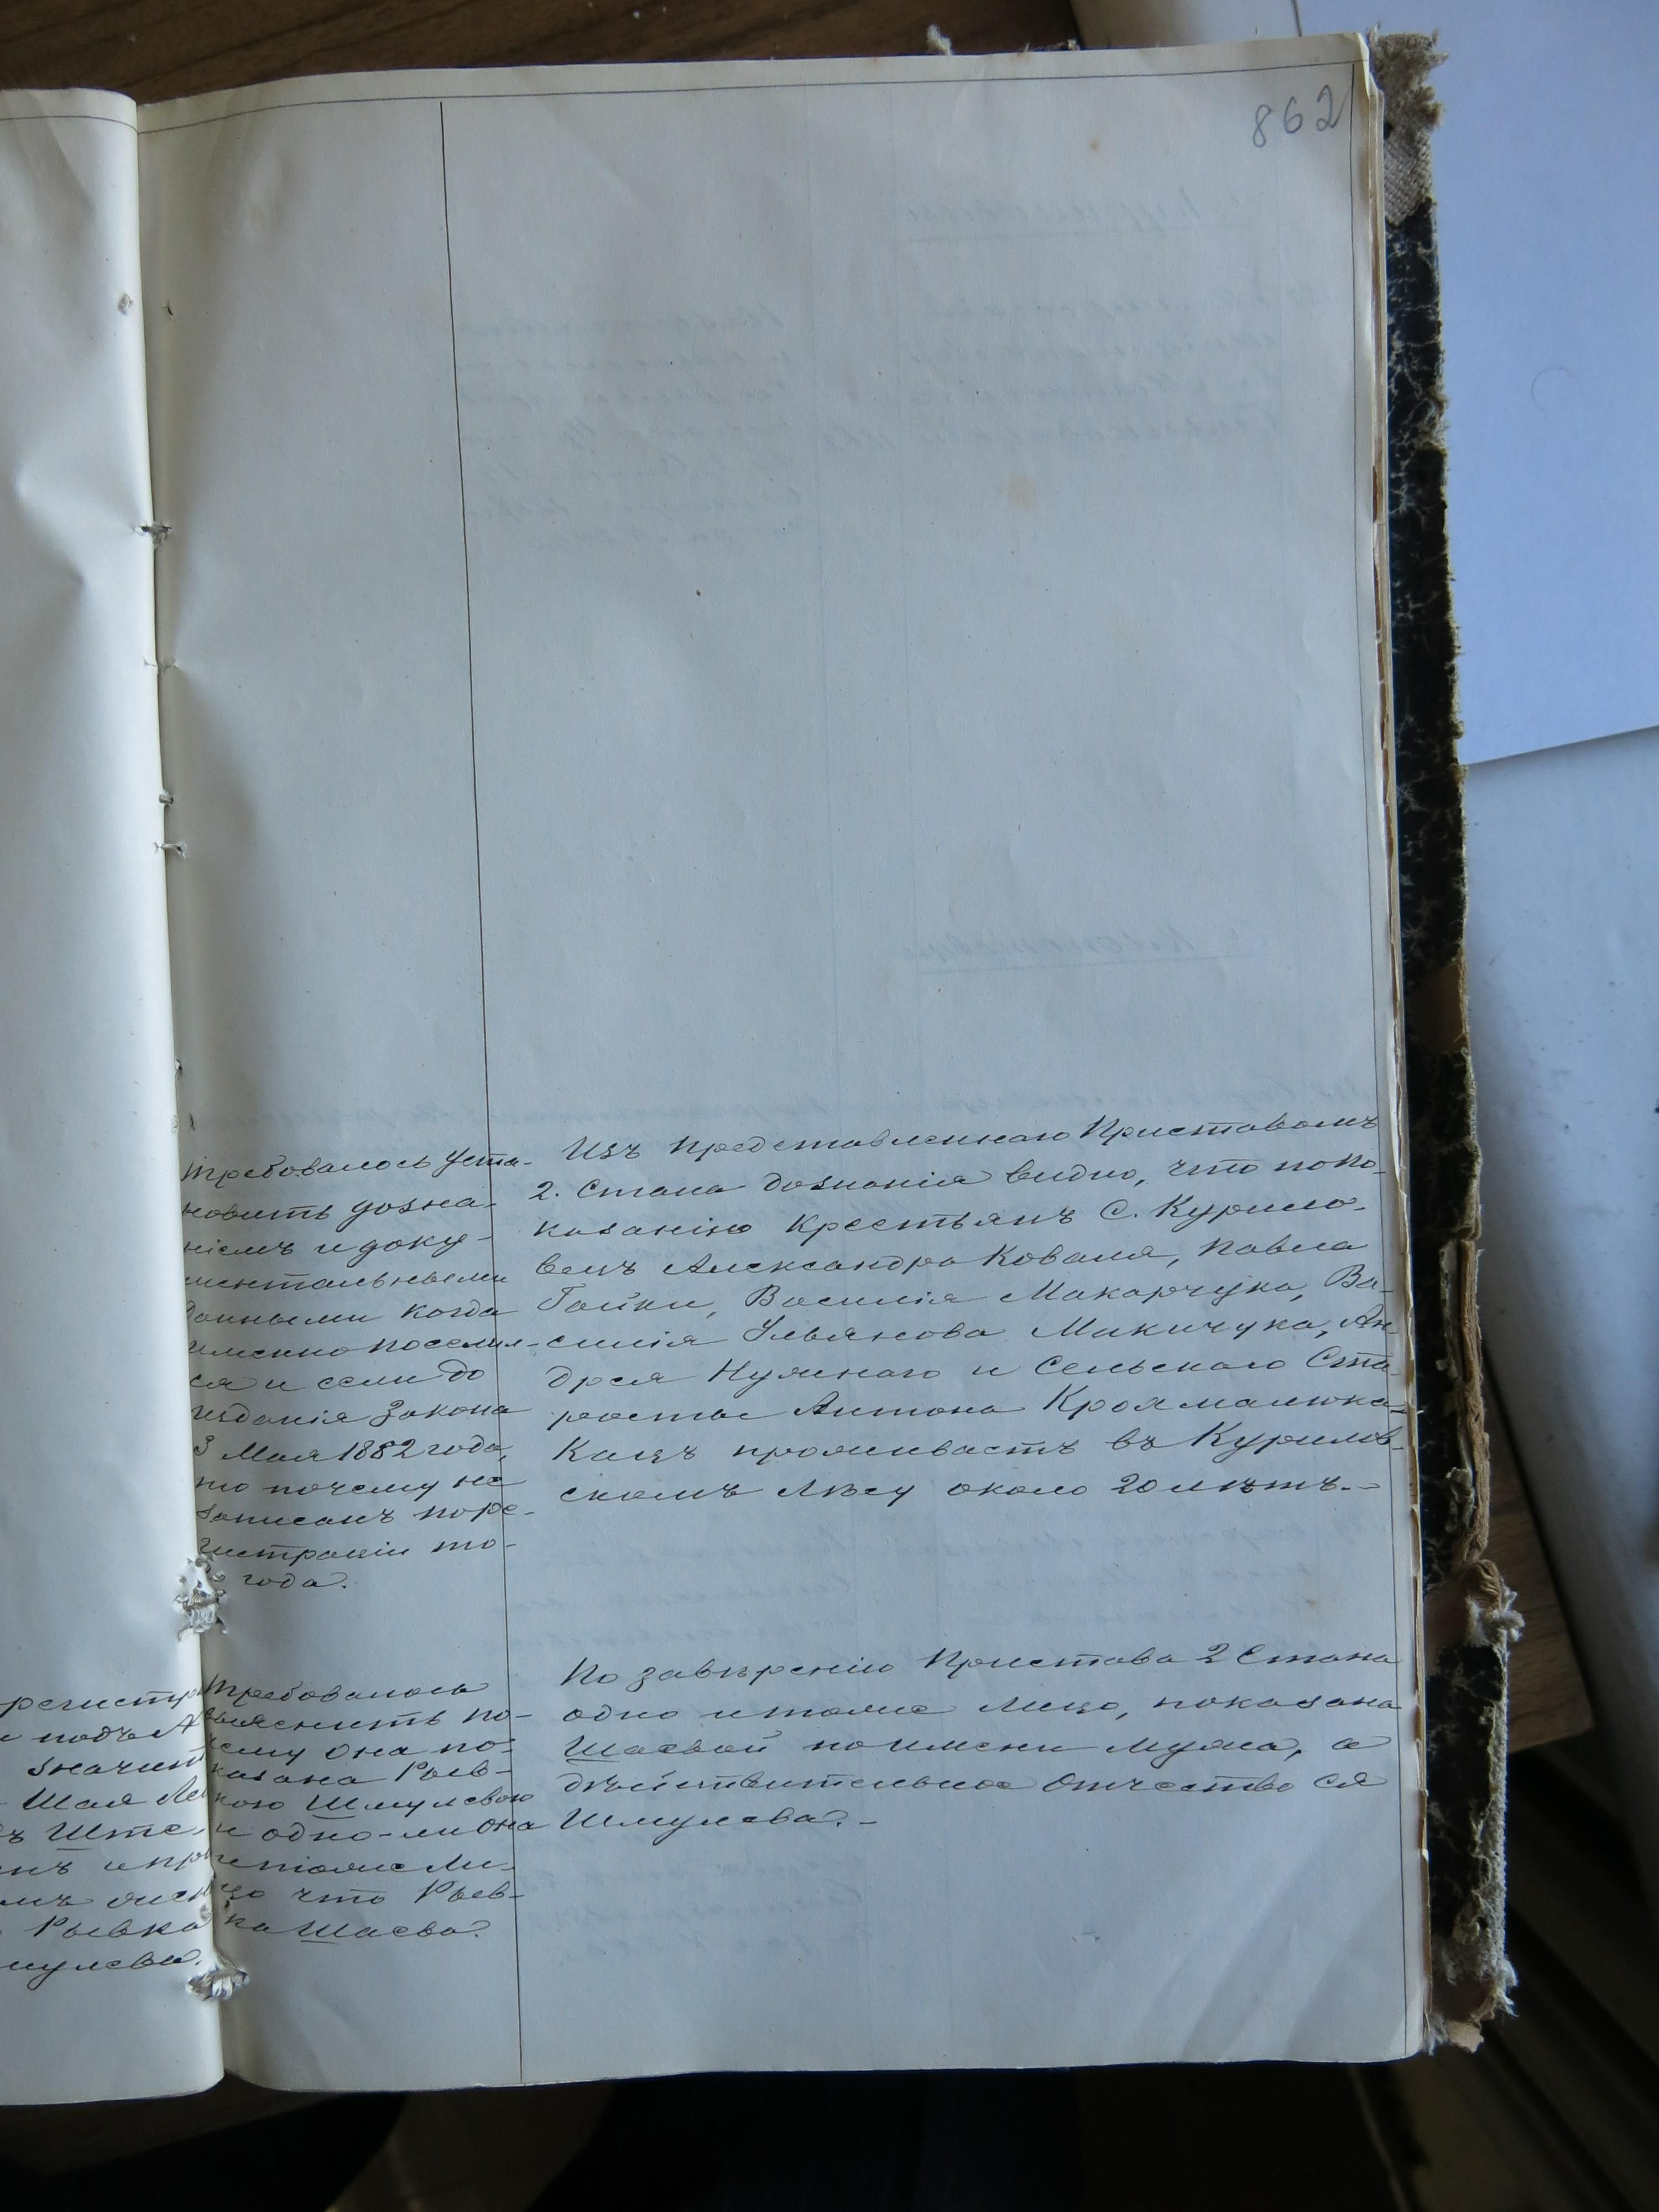 862
Требовалось уста-
новить дозна-
ніемъ и доку-
ментальными
данными когда
именно поселил-
ся и если до
изданія Закона
3 Мая 1882 года,
то почему не
записанъ по ре-
гистраціи то-
го года.
Изъ представленнаго Приставомъ
2. Стана дознанія видно, что по по-
казанію крестьянъ С. Курило-
вецъ Александра Коваля, Павла
Гайки, Василія Макарчука, Ва-
силія Ульянова Микичука, Ан-
дрея Нужнаго и Сельскаго Ста-
росты Антона Крохмалюка
Кацъ проживаетъ въ Курилов-
скомъ лѣсу около 20 лѣтъ.-
регистр
подъ А
значит
Шая Ле
ъ Ште
нъ и пр
мъ
Рывка
мулева.
Требовалось
выяснить по-
чему она по-
казана Рыв-
кою Шмулевою
и одно-ли она
и тоже ли-
цо что Рыв-
ка Шаева.
По завѣренію Пристава 2 Стана
одно и тоже лицо, показана
Шаевой по имени мужа, а
дѣйствительное отчество ея
Шмулева.-